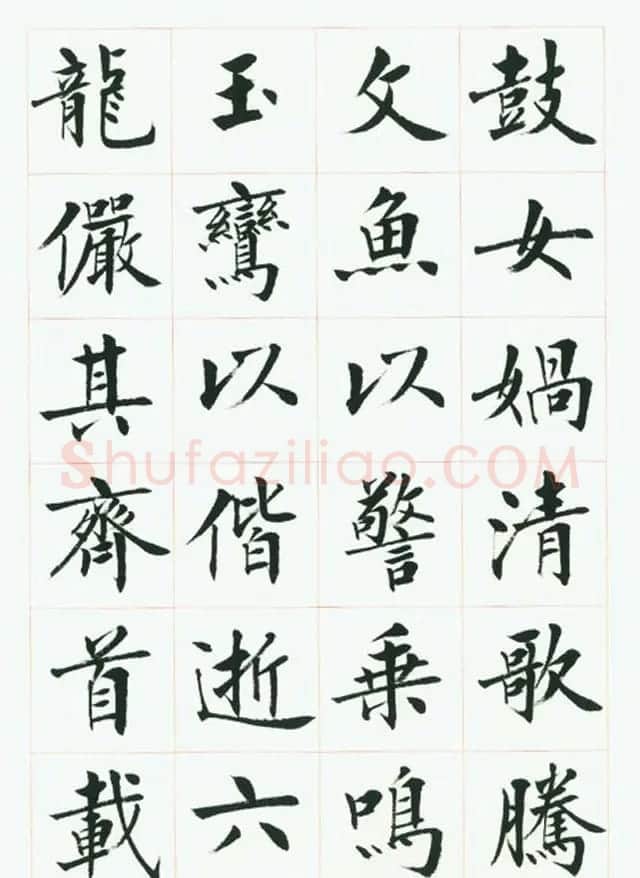 鼓女媧清歌騰
文魚以警乗鳴
玉鸞以偕逝六
龍儼其齊首載
Shufaziliao.COM